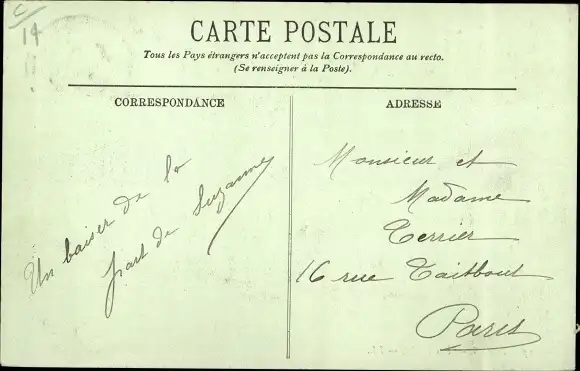 C
19
CARTE POSTALE
Tous les Pays étrangers n'acceptent pas la Correspondance au recto.
(Se renseigner à la Poste).
CORRESPONDANCE
Un baiser de la
part de Suzanne
ADRESSE
Monsieur et
Madame
Terrier
16 rue Taitbout
Paris